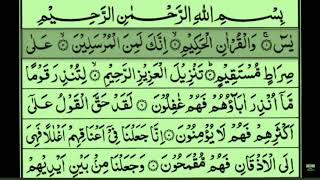 بِسْمِ اللهِ الرَّحْمٰنِ الرَّحِيْمِ
يٰسٓ ۚ وَالْقُرْاٰنِ الْحَكِيْمِ ۙ اِنَّكَ لَمِنَ الْمُرْسَلِيْنَ ۙ عَلٰى
صِرَاطٍ مُّسْتَقِيْمٍ ؕ تَنْزِيْلَ الْعَزِيْزِ الرَّحِيْمِ ۙ لِتُنْذِرَ قَوْمًا
مَّاۤ اُنْذِرَ اٰبَآؤُهُمْ فَهُمْ غٰفِلُوْنَ ۝ لَقَدْ حَقَّ الْقَوْلُ عَلٰٓى
اَكْثَرِهِمْ فَهُمْ لَا يُؤْمِنُوْنَ ۝ اِنَّا جَعَلْنَا فِيْۤ اَعْنَاقِهِمْ اَغْلٰلًا فَهِيَ
اِلَى الْاَذْقَانِ فَهُمْ مُّقْمَحُوْنَ ۝ وَجَعَلْنَا مِنْۢ بَيْنِ اَيْدِيْهِمْ